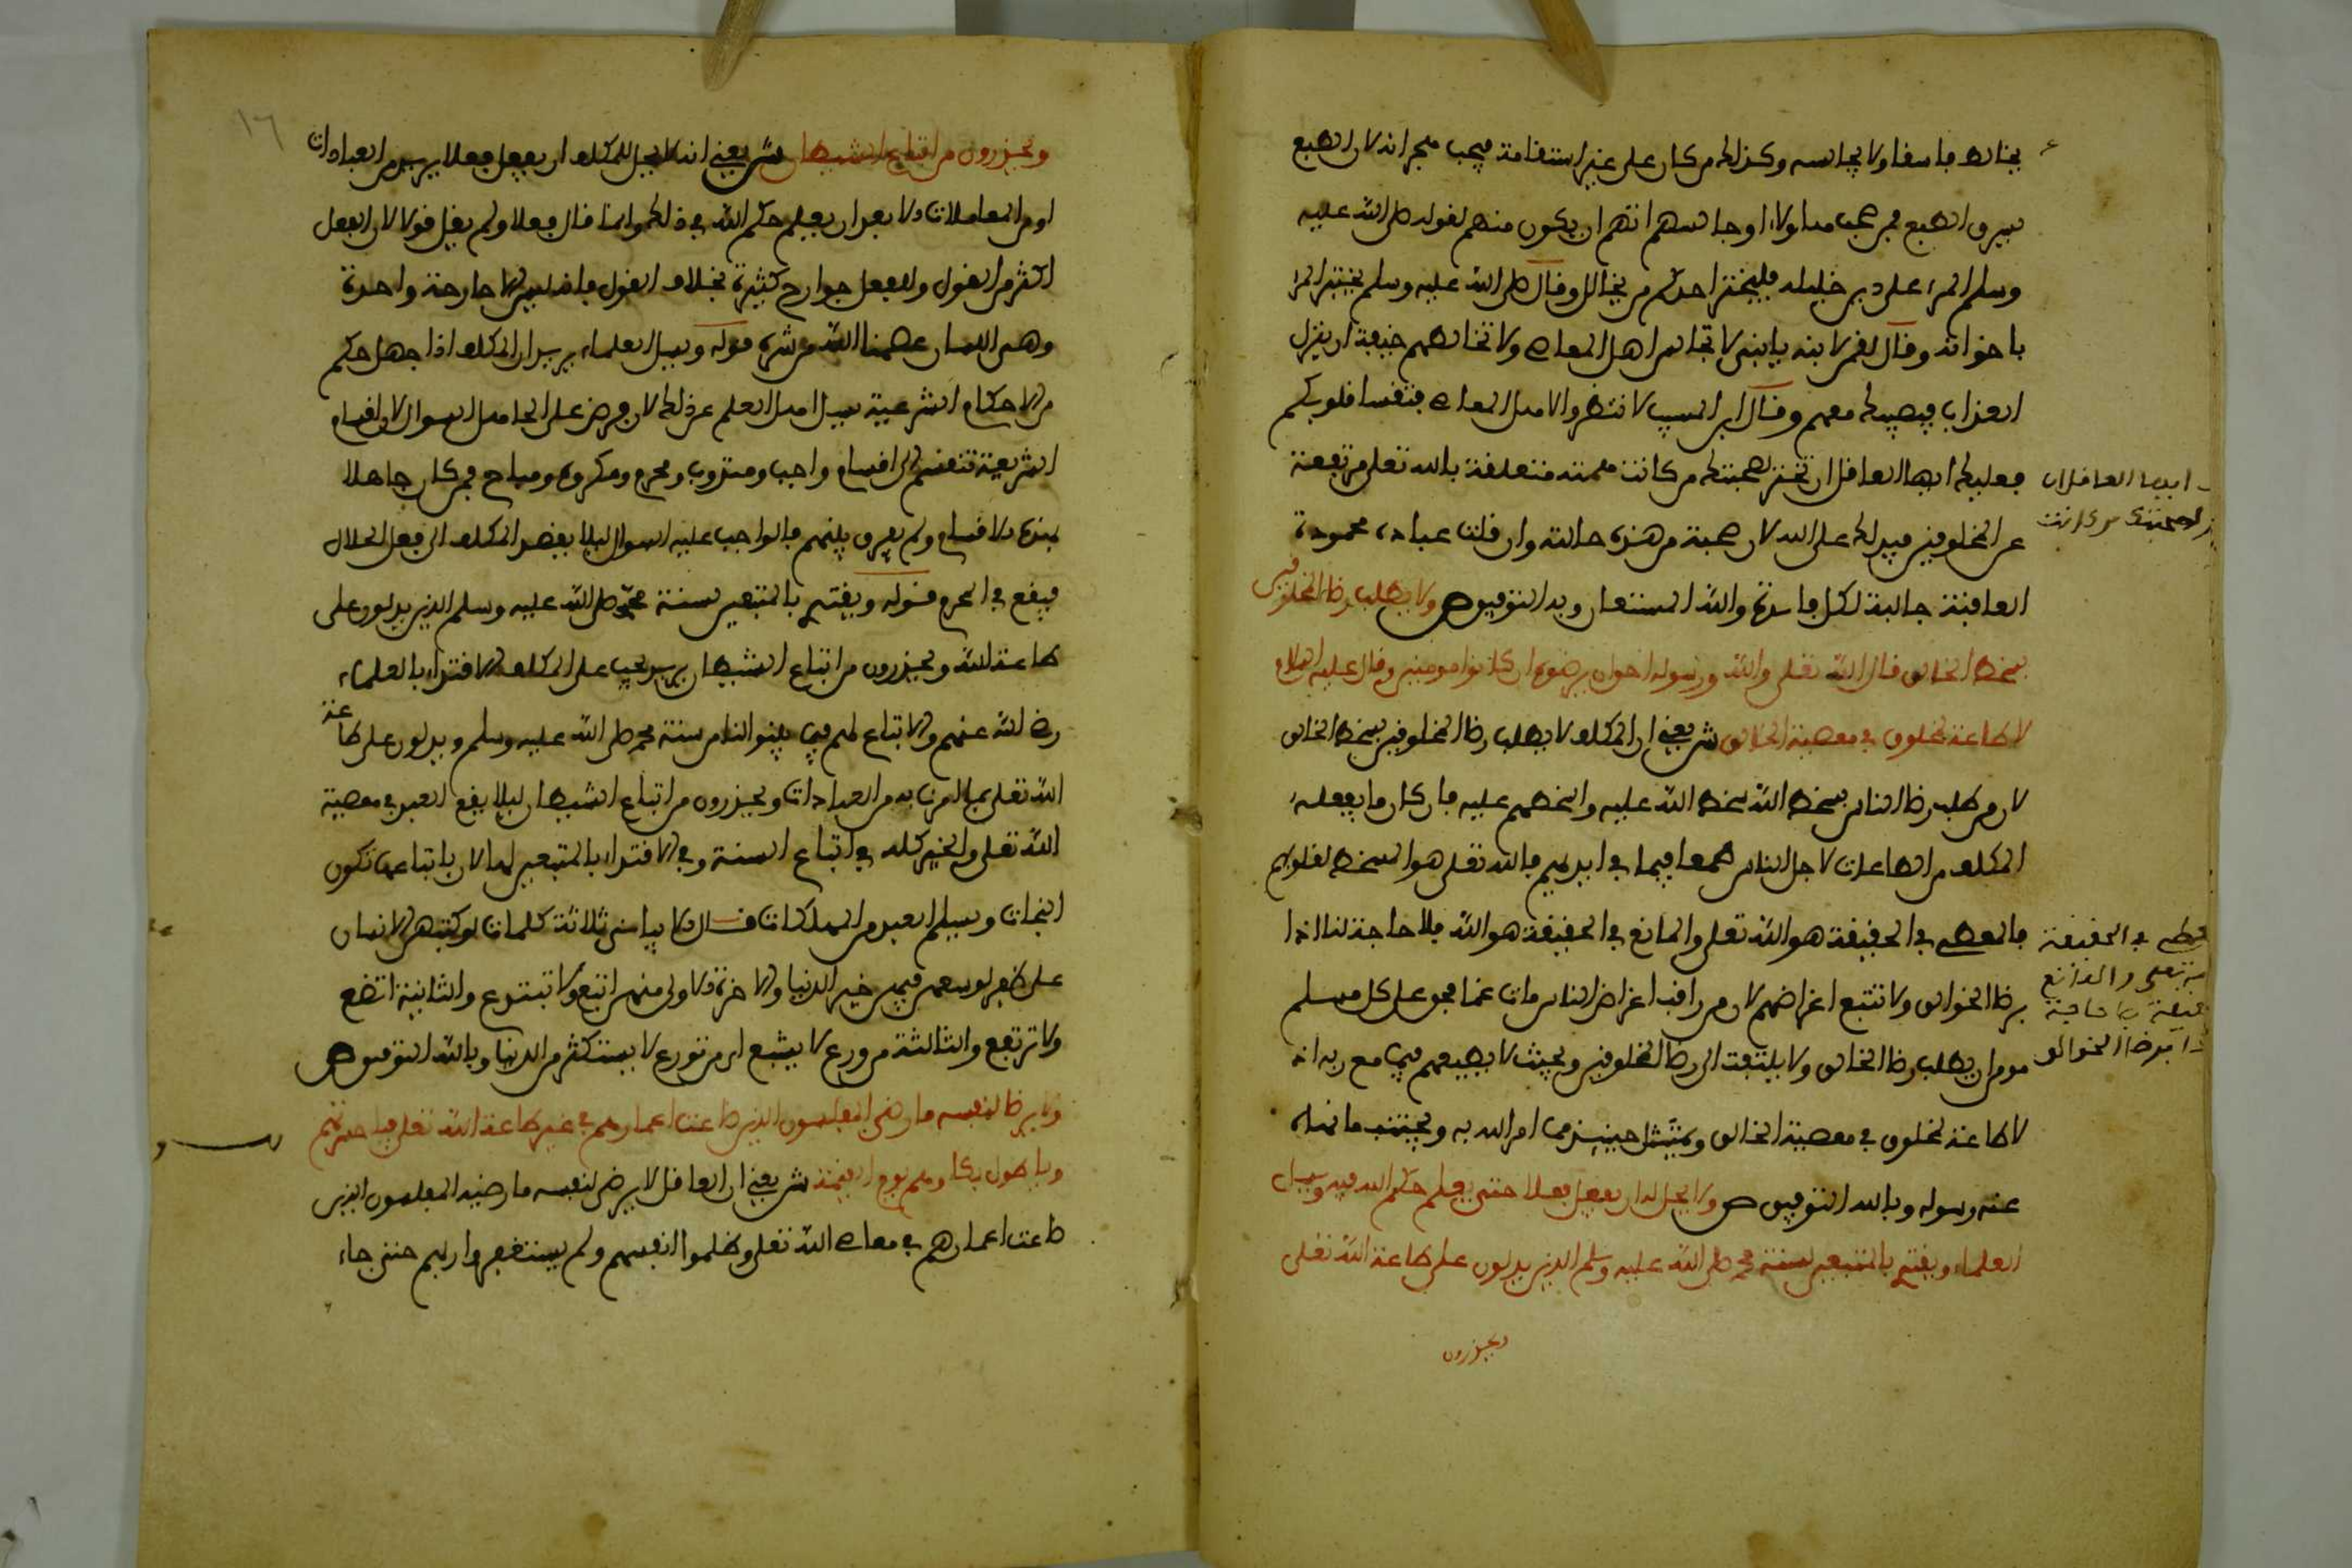 يخالط فاسقا ولا يجالسه وكذلك من كان على غير استقامة فيجب هجرانه لان الطبع
يسرق الطبع فمن صحب هؤلاء او جالسهم اتهم ان يكون منهم لقوله صلى الله عليه
وسلم المرء على دين خليله فلينظر احدكم من يخالل وقال صلى الله عليه وسلم يختبر المرء
باخوانه وقال لقمن لابنه يا بني لا تجالس اهل المعاصي ولا تخالطهم خيفة ان ينزل
العذاب فيصيبك معهم وقال ابن المسيب لا تنظروا لاهل المعاصي فتقسا قلوبكم
فعليك ايها العاقل ان تختر لصحبتك من كانت همته متعلقة بالله تعلى مرتفعة
عن المخلوقين فيدلك على الله لان صحبة من هذه حالته وان قلت عباده محمودة
العاقبة جالبة لكل فايدة والله المستعان وبه التوفيق ص ولا يطلب رضا المخلوقين
بسخط الخالق قال الله تعلى والله ورسوله احق ان يرضوه ان كانوا مومنين وقال عليه السلام
لا طاعة لمخلوق في معصية الخالق ش يعني ان المكلف لا يطلب رضا المخلوقين بسخط الخالق
لان من طلب رضا الناس بسخط الله سخط الله عليه واسخطهم عليه فان كان ما يفعله
المكلف من الطاعات لاجل الناس طمعا فيما في ايديهم فالله تعلى هو المسخط لقلوبهم
فالمعطي في الحقيقة هو الله تعلى والمانع في الحقيقة هو الله فلا حاجة لنا اذا
برضا الخوالق ولا نتبع اغراضهم لان من راقب اغراض الناس مات غما فحق على كل مسلم
مومن ان يطلب رضا الخالق ولا يلتفت الى رضا المخلوقين وبحيث لا يطيعهم فيما مع ربه اذ
لا طاعة لمخلوق في معصية الخالق ويمتثل حينئذ ما امر الله به ويجتنب ما نهاه
عنه رسوله وبالله التوفيق ص ولا يحل له ان يفعل فعلا حتى يعلم حكم الله فيه ويسال
العلماء ويقتدي بالمتبعين لسنة محمد صلى الله عليه وسلم الذين يدلون على طاعة الله تعلى
ويحذرون
ايها العاقل ان
لصحبتك من كانت
في الحقيقة
تعلى والمانع
برضا الخوالق
١٦
ويحذرون من اتباع الشيطان ش يعني انه لا يحل للمكلف ان يفعل فعلا يريد من العبادات
او من المعاملات ولا بعد ان يعلم حكم الله في ذلك وانما قال فعلا ولم يقل قولا لان الفعل
اكثر من القول وللفعل جوارح كثيرة بخلاف القول فانه ليس لها جارحة واحدة
وهي اللسان عصمنا الله من شره قوله ويسل العلماء يريد ان المكلف اذا جهل حكم
من الاحكام الشرعية يسل اهل العلم عن ذلك لان فرض على الجاهل السوال لان اقسام
الشريعة تنقسم الى اقسام واجب ومندوب ومحرم ومكروه ومباح فمن كان جاهلا
بهذه الاقسام ولم يعرف بينهم فالواجب عليه السوال ليلا يقصد المكلف الى فعل الحلال
فيقع في الحرم قوله ويقتدي بالمتبعين لسنة محمد صلى الله عليه وسلم الذين يدلون على
طاعة الله ويحذرون من اتباع الشيطان يريد يجب على المكلف الاقتداء بالعلماء
رضي الله عنهم والاتباع لهم فيما بينوا للناس سنة محمد صلى الله عليه وسلم ويدلون على طاعة
الله تعلى بما امرنا به من العبادات ويحذرون من اتباع الشيطان ليلا يقع العبد في معصية
الله تعلى والخير كله في اتباع السنة وفي الاقتداء بالمتبعين لها لان باتباعها تكون
النجات ويسلم العبد من المهلكات قال ثلاثة كلمات لو كتبهن الانسان
على ظفر لوسعهن فيهن خير الدنيا والاخرة فالاولى منهن اتبع ولا تبتدع والثانية اتضع
ولا ترتفع والثالثة من ورع لا يشبع اي من تورع لا يستكثر من الدنيا وبالله التوفيق ص
ولا يرضا لنفسه ما رضي المفلسون الذين ضاعت اعمارهم في غير طاعة الله تعلى فيا حسرتهم
ويا طول بكاءهم يوم القيمة ش يعني ان العاقل لا يرضى لنفسه ما رضيه المفلسون الذين
ضاعت اعمارهم في معاصي الله تعلى وظلموا انفسهم ولم يستغفروا ربهم حتى جاء